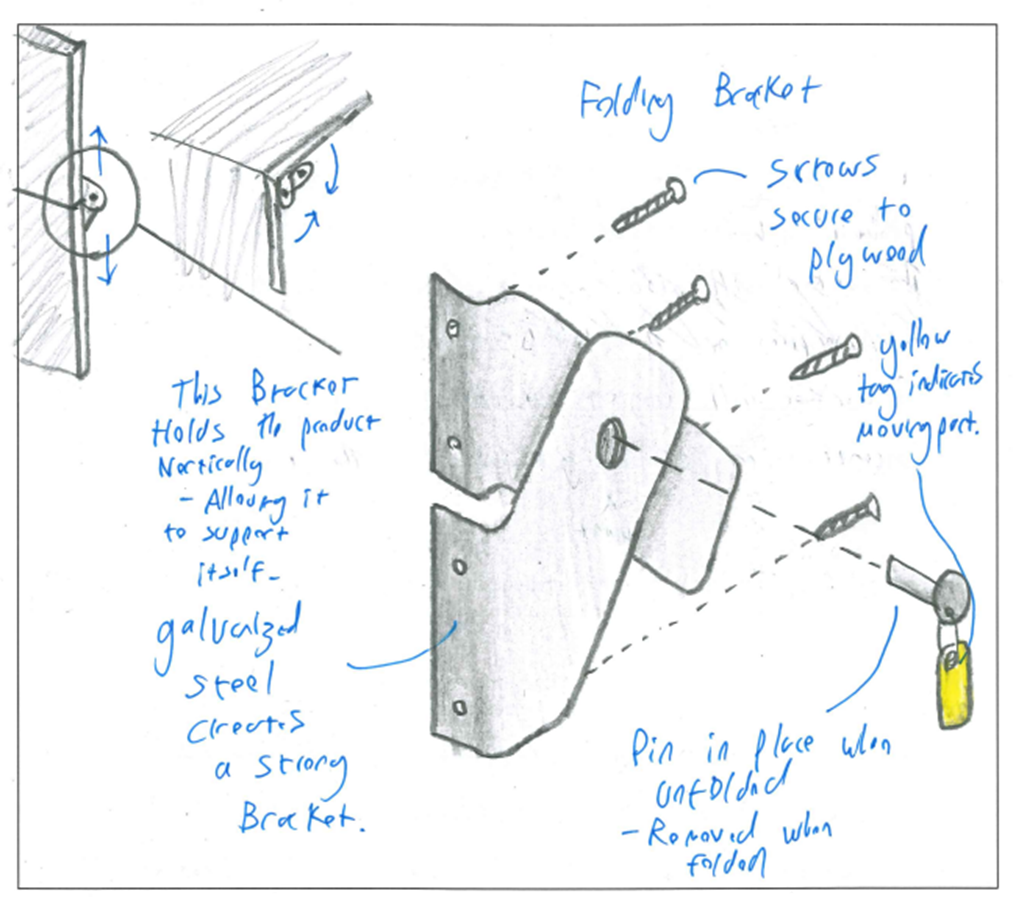 Folding Bracket
Srrows
secure to
plywood
yellow
tag indicates
moving part.
This Bracket
Holds the product
Vertically
- Allowing it
to support
itself-
galvanized
steel
Creates
a strong
Bracket.
Pin in place when
unfolded
- Removed when
folded